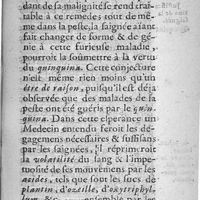 dant de sa malignité se rend trai-
table à ce remede; tout de mê-
me dans la peste, la saignée aïant
fait changer de forme & de gé-
nie à cette furieuse maladie,
pourroit la soumettre à la vertu
du quinquina. Cette conjecture
n'est même rien moins qu'un
être de raison, puisqu'il est déja
observée que des malades de la
peste ont été guéris par le quin-
quina. Dans cette esperance un
Medecin entendu feroit les dé-
gagemens necessaires & suffisans
par les saignées, il réprimeroit
la volatilité du sang & l'impe-
tuosité de ses mouvemens par les
acides, tels que sont les sucs de
plantin, d'ozeille, d'oxytriphyl-